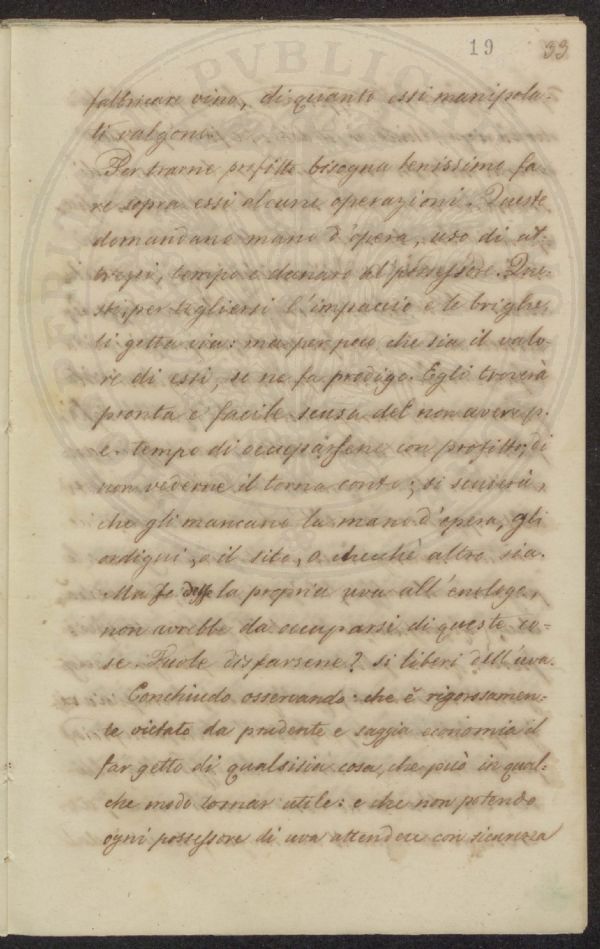 19 33
fabbricare vino, di quanto essi manipola-
ti valgono.
Per trarne profitto bisogna benissimo fa-
re sopra essi alcune operazioni. Queste
domandano mano d'opera, uso di at-
trezzi, tempo e danaro al possessore. Que-
sti, per togliersi l'impaccio e le brighe,
li getta via: ma per poco che sia il valo-
re di essi, se ne fa prodigo. Egli troverà
pronta e facile scusa del non avere p.
e. tempo di occuparsene con profitto; di
non vederne il torna conto; si scuserà,
che gli mancano la mano d'opera, gli
ordigni, o il sito, o checchè altro sia.
Ma se desse la propria uva all'enologo,
non avrebbe da occuparsi di queste co-
se. Vuole disfarsene? si liberi dell'uva.
Conchiudo osservando: che è rigorosamen-
te vietato da prudente e saggia economia il
far getto di qualsisia cosa, che può in qual-
che modo tornar utile: e che non potendo
ogni possessore di uva attendere con sicurezza